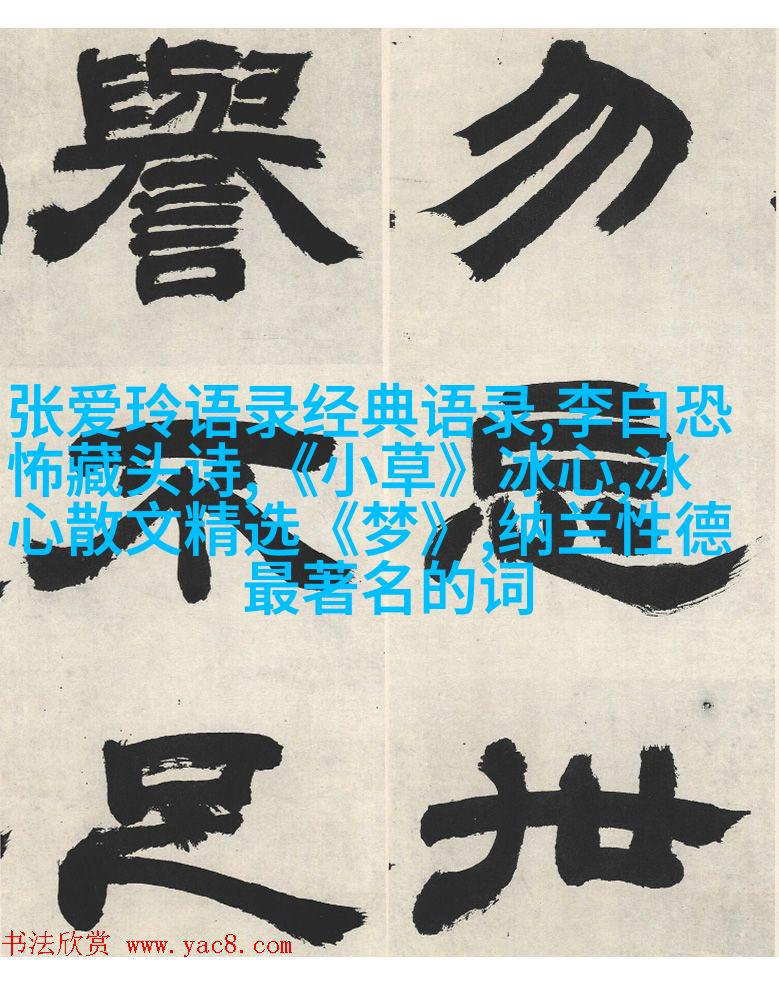 勿忘世
譽不足
张爱玲语录经典语录,李白恐
怖藏头诗,《小草》冰心,冰
心散文精选《梦》,纳兰性德
最著名的词
书法欣赏 www.yac8.com